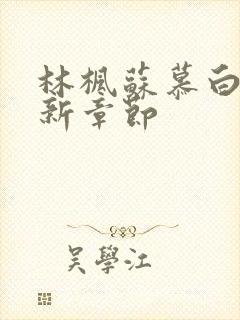 林楓蘇慕白
新章節
吴學江